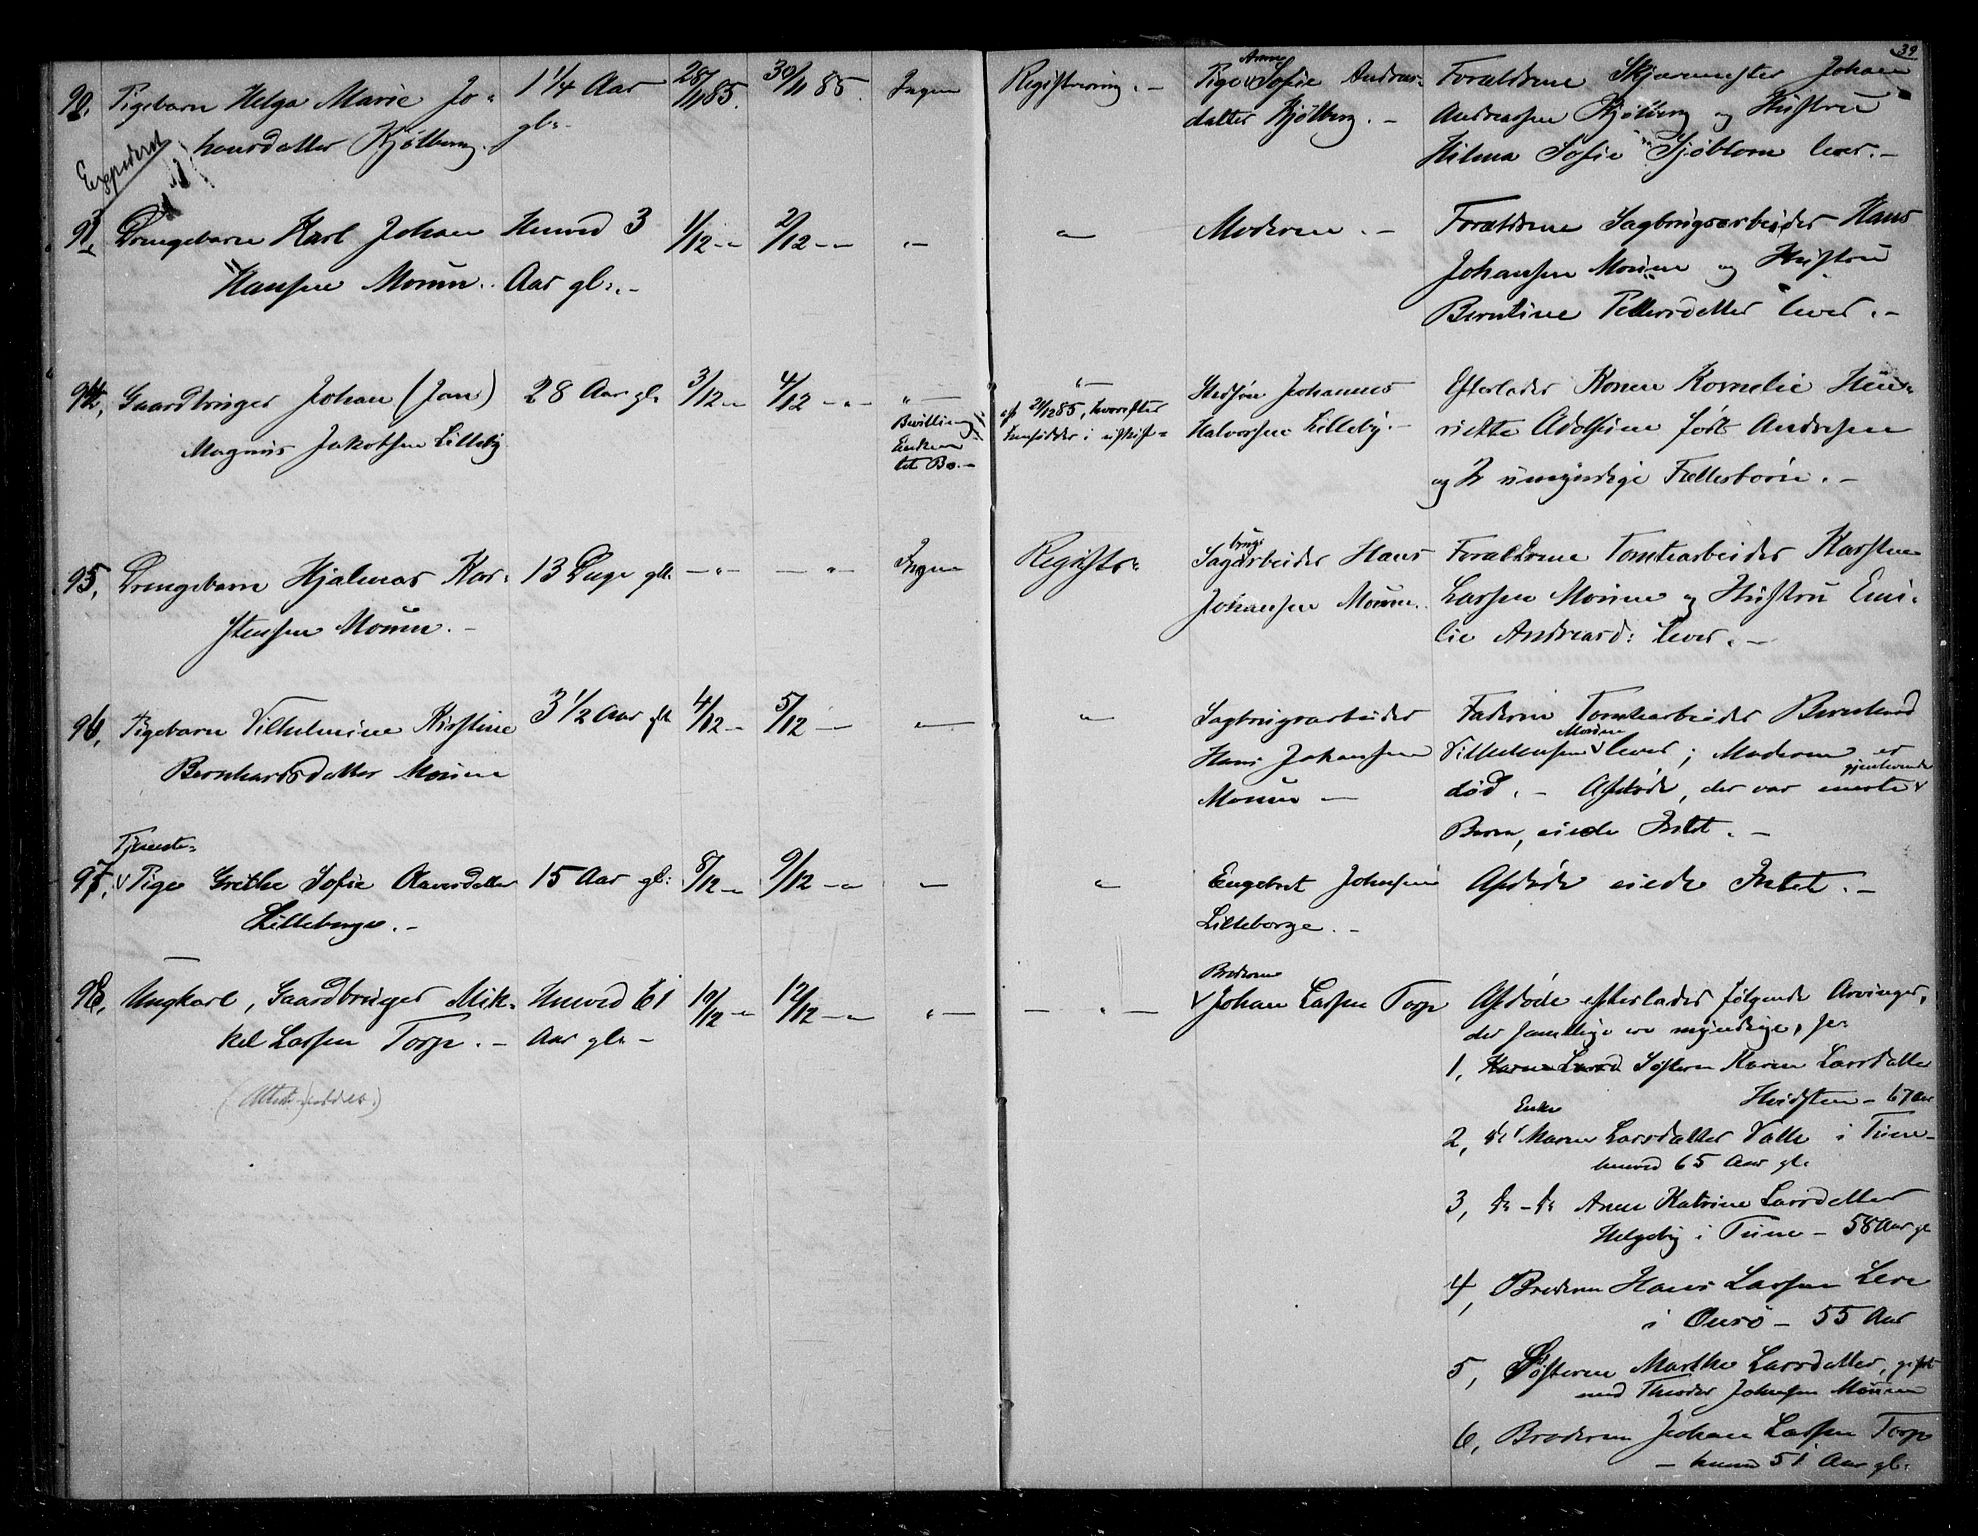 39
92. Pigebarn Helga Marie Jo-
hansdatter Kjølberg.
Expederet
1 1/4 Aar
gl.
28/11 85.
30/11 85.
Ingen
Registrering. -
Anne
Pige Sofie Andreas-
datter Kjølberg. -
Forældrene Skjærmester Johan
Andreassen Kjølberg og Hustru
Hilma Sofie Sjöblom lever. -
93, Drengebarn Karl Johan
Hansen Moum.
Henved 3
Aar gl. -
1/12 - "
2/12 - " -
" -
"
Moderen. -
Forældrene Sagbrugsarbeider Hans
Johansen Moum og Hustru
Berntine Pettersdatter lever. -
94, Gaardbruger Johan (Jon)
Magnus Jakobsen Lilleby
28 Aar gl.
3/12 - "
4/12 - " -
" -
Bevilling
Enken
tet Bo. -
"
af 21/12 85, hvorefter
hensidder i uskif-
Stedsøn Johannes
Halvorsen Lilleby. -
Efterlader Konen Kornelie Hen-
riette Adolfine født Andresen
og 2 umyndige Fællesbørn. -
95, Drengebarn Hjalmar Kar-
stensen Moum. -
13 Dage gl.
- " -
- " -
Ingen
Registr.
brugs
Sagarbeider Hans
Johansen Moum.
Forældrene Tomtearbeider Karsten
Larsen Moum og Hustru Emi-
lie Andreasd: lever. -
96, Pigebarn Vilhelmine Kristine
Bernhardsdatter Moum
3 1/2 Aar gl.
4/12 - "
5/12 - " -
" -
"
Sagbrugsarbeider
Hans Johansen
Moum -
Faderen Tomtearbeider Bernhard
Moum
Vilhelmsen lever; Moderen er
gjenlevende
død. - Afdøde, der var eneste
Barn, eiede Intet. -
Tjeneste-
97, Pige Grethe Sofie Olavesdatter
Lilleborge. -
15 Aar gl:
8/12 - "
9/12 - "
" -
"
Engebret Johnsen
Lilleborge. -
Afdøde eiede Intet. -
98, Ungkarl, Gaardbruger Mik-
kel Larsen Torp. -
Henved 61
Aar gl. -
10/12 - "
12/12 - "
" -
- " -
Broderen
Johan Larsen Torp
Afdøde efterlader følgende Arvinger,
der samtlige ere myndige,
1, Søsteren Karen Larsdatter
Hvidsten - 67 Aar
Enke
2, do Maren Larsdatter Valle i Tune -
henved 65 Aar gl.
3, do - do Anne Katrine Larsdatter
Helgeby i Tune - 58 Aar gl
4, Broderen Hans Larsen Lere
i Onsø - 55 Aar
5, Søsteren Marthe Larsdatter, gift
med Theodor Johnsen Moum
6, Broderen Johan Larsen Torp
- henv 51 Aar gl.